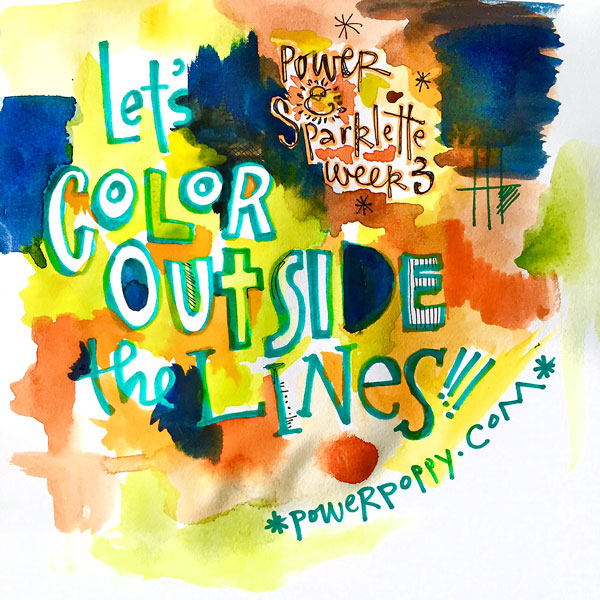 Let's
COLOR
OUTSIDE
the LINES!!!
POWER
&
Sparklette
week 3
*powerpoppy.com*